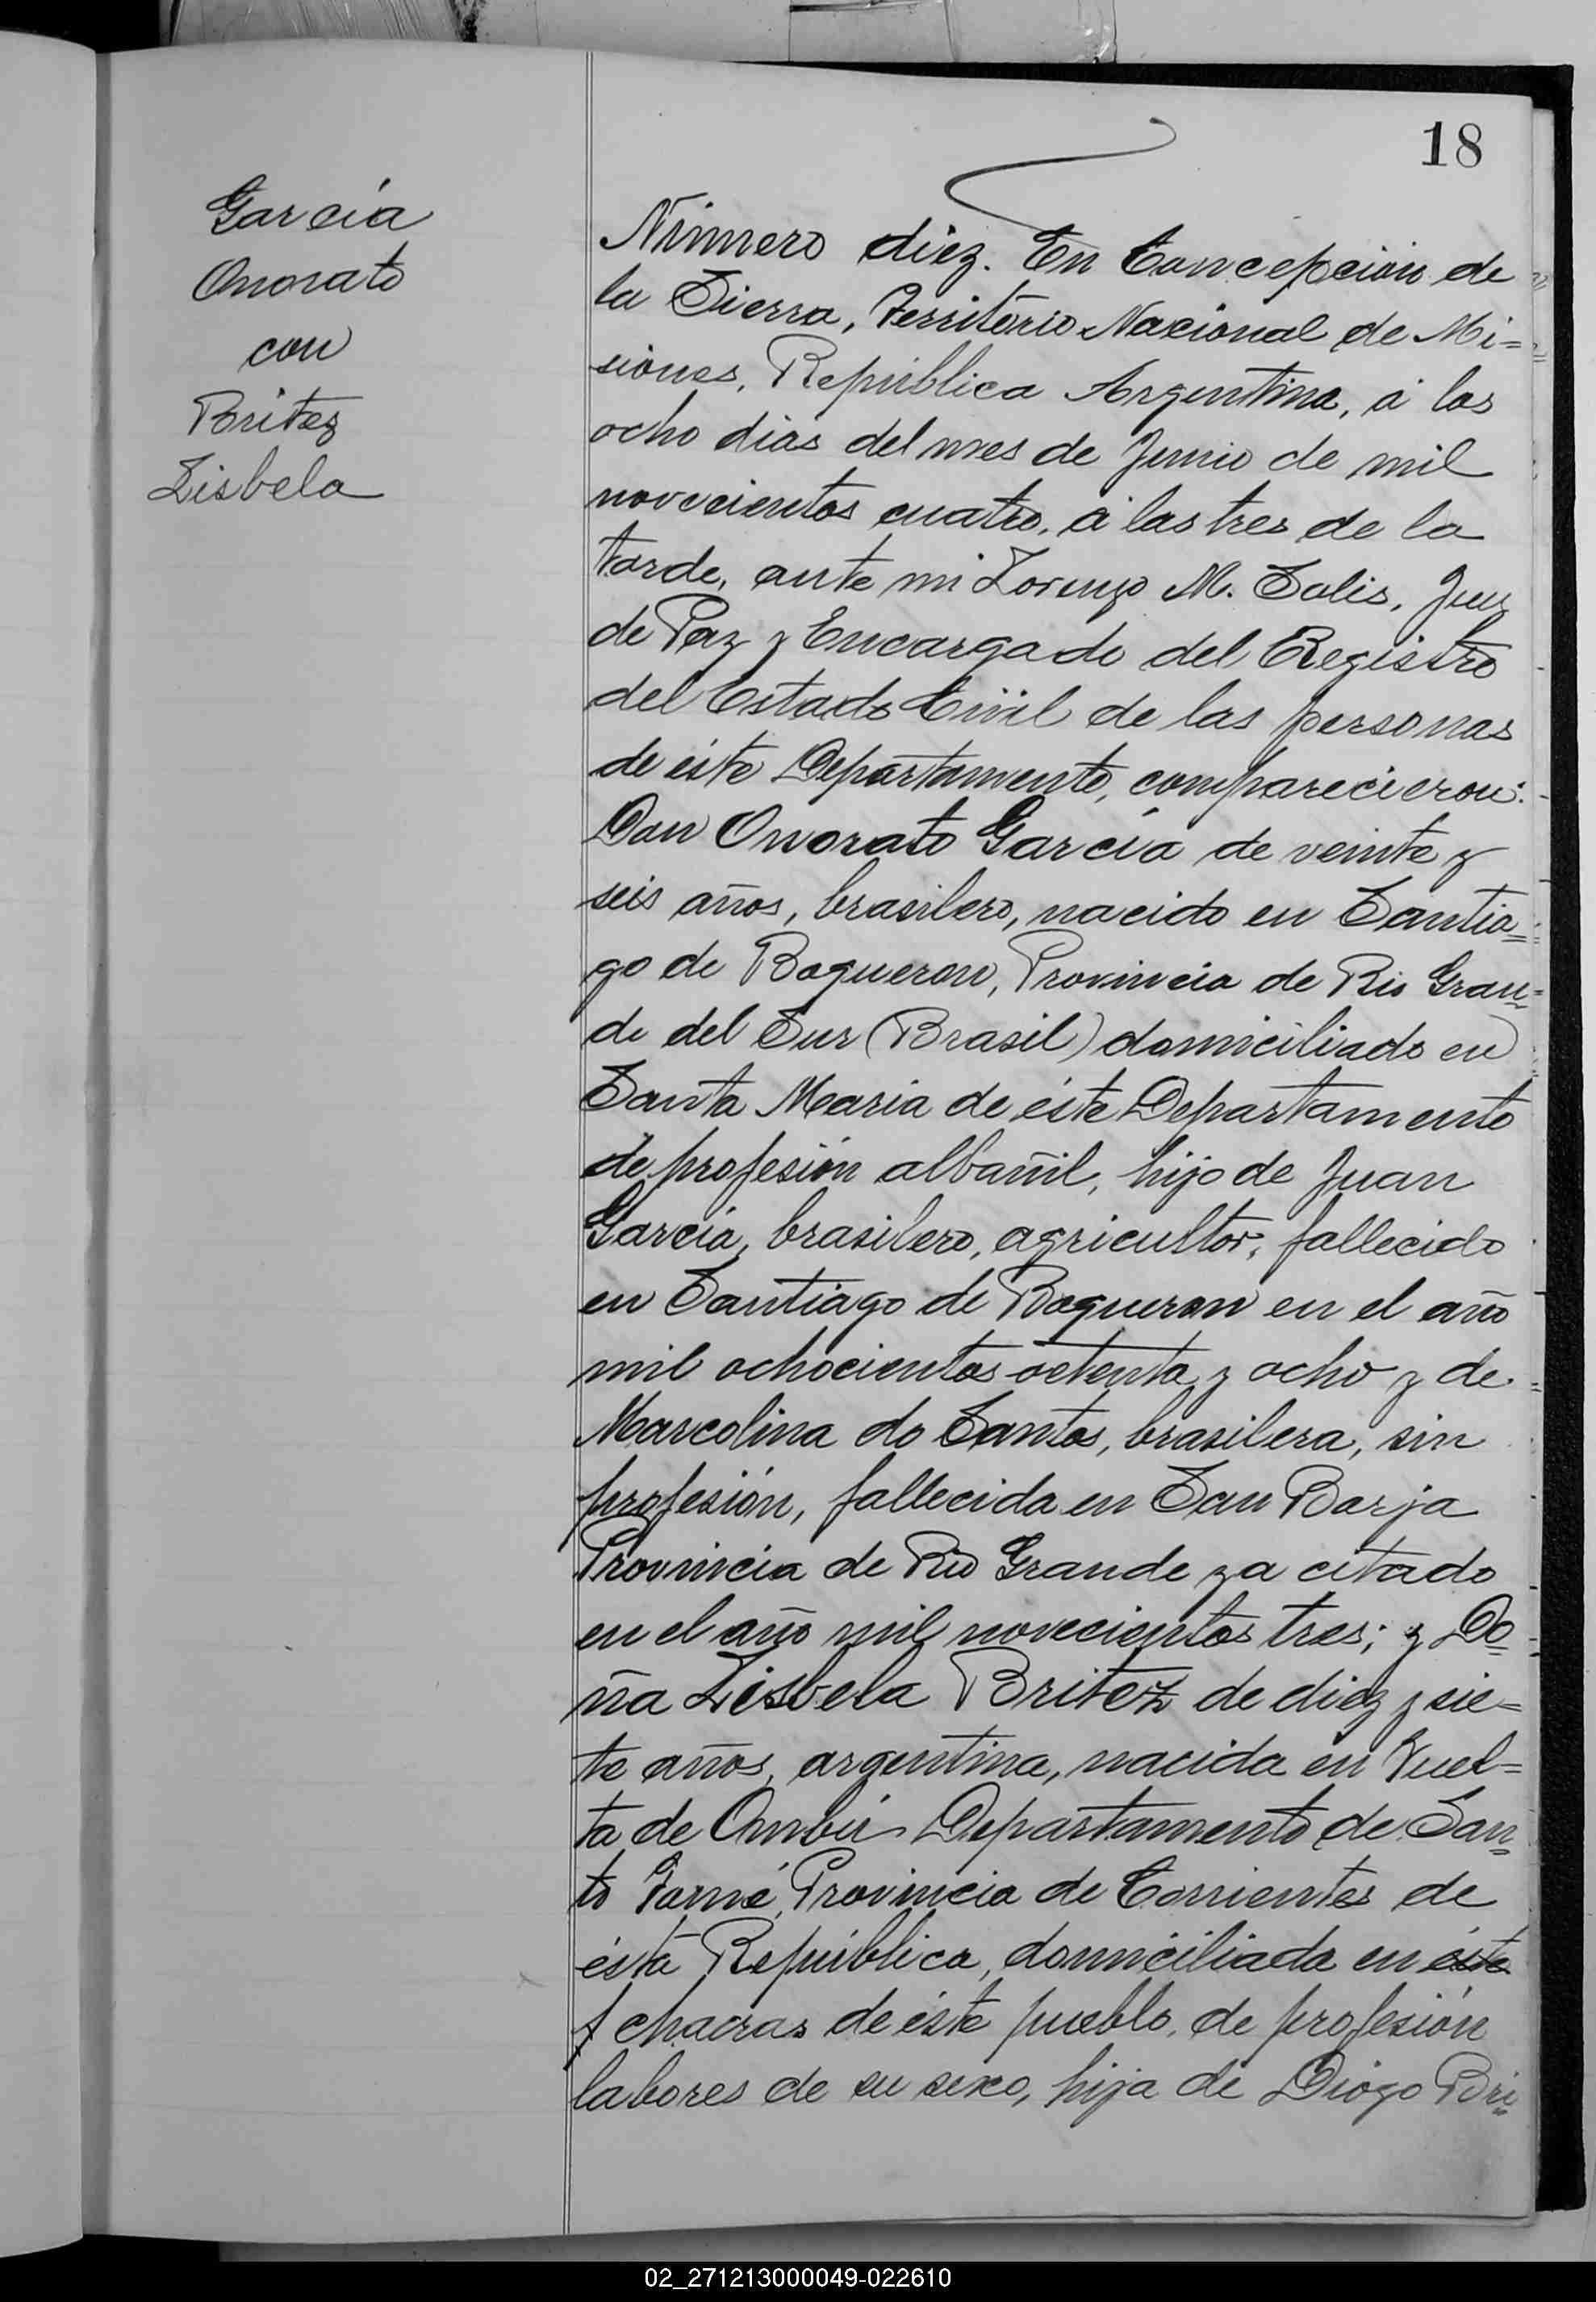 18
García
Onorato
con
Britez
Lisbela
Número diez. En Concepción de
la Sierra, Territorio Nacional de Mi=
siones, República Argentina, á los
ocho dias del mes de Junio de mil
novecientos cuatro, á las tres de la
tarde, ante mi Lorenzo M. Solis, Juez
de Paz y Encargado del Registro
del Estado Civil de las personas
de éste Departamento, comparecieron:
Don Onorato García de veinte y
seis años, brasilero, nacido en Santia=
go de Boqueron, Provincia de Rio Gran=
de del Sur (Brasil) domiciliado en
Santa Maria de éste Departamento
de profesión albañil, hijo de Juan
García, brasilero, agricultor, fallecido
en Santiago de Boqueron en el año
mil ochocientos ochenta y ocho y de
Marcolina do Santos, brasilera, sin
profesión, fallecida en San Borja
Provincia de Rio Grande ya citado
en el año mil novecientos tres; y Do=
ña Lisbela Britez de diez y sie=
te años, argentina, nacida en Vuel=
ta de Ombú Departamento de San=
to Tomé, Provincia de Corrientes de
ésta República, domiciliada en éste
chacras de éste pueblo, de profesión
labores de su sexo, hija de Diógo Bri=
02_271213000049-022610